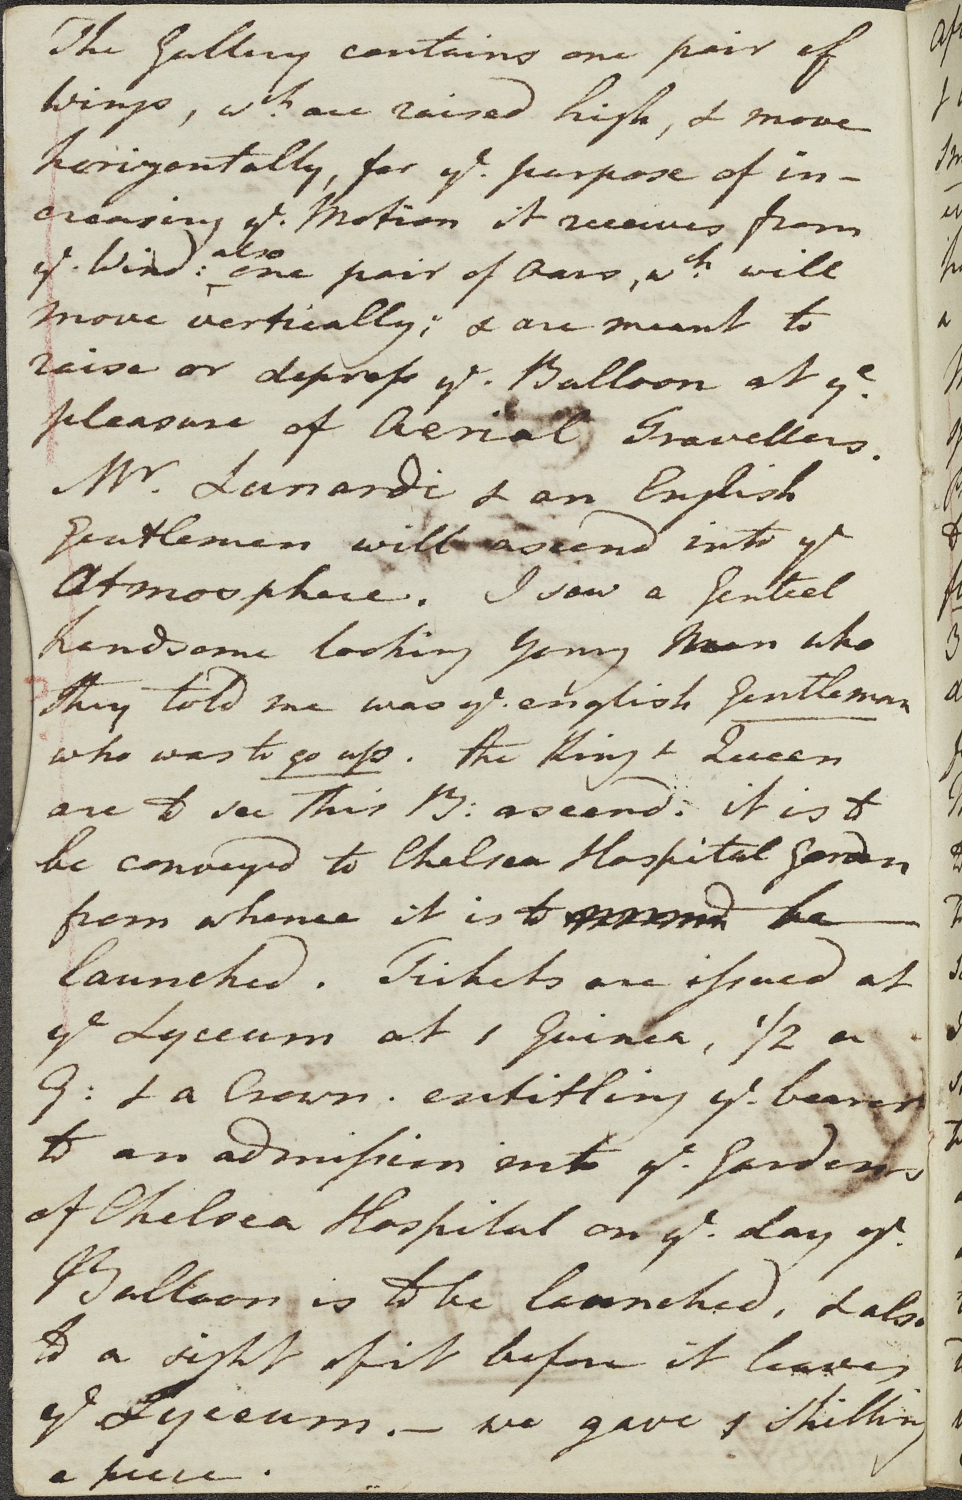 The Gallery contains one pair of
Wings, wch. are raised high, & move
horizontally, for ye. purpose of in-
creasing ye. Motion it receives from
ye. Wind: also one pair of Oars, wch. will
move vertically; & are meant to
raise or depress ye. Balloon at ye.
pleasure of Aerial Travellers.
Mr. Lunardi & an English
Gentleman will ascend into ye
Atmosphere. I saw a Genteel
handsome looking young Man who
they told me was ye. english Gentleman
who was to go up. the King & Queen
are to see this B: ascend: it is to
be convey'd to Chelsea Hospital Garden
from whence it is to be
launched. Tickets are issued at
ye Lyceum at 1 Guinea, 1/2 a
G: & a Crown. entitling ye. bearer
to an admission into ye. Gardens
of Chelsea Hospital on ye. day ye.
Balloon is to be launched, & also
to a sight of it before it leaves
ye Lyceum. — we gave 1 Shilling
a piece.